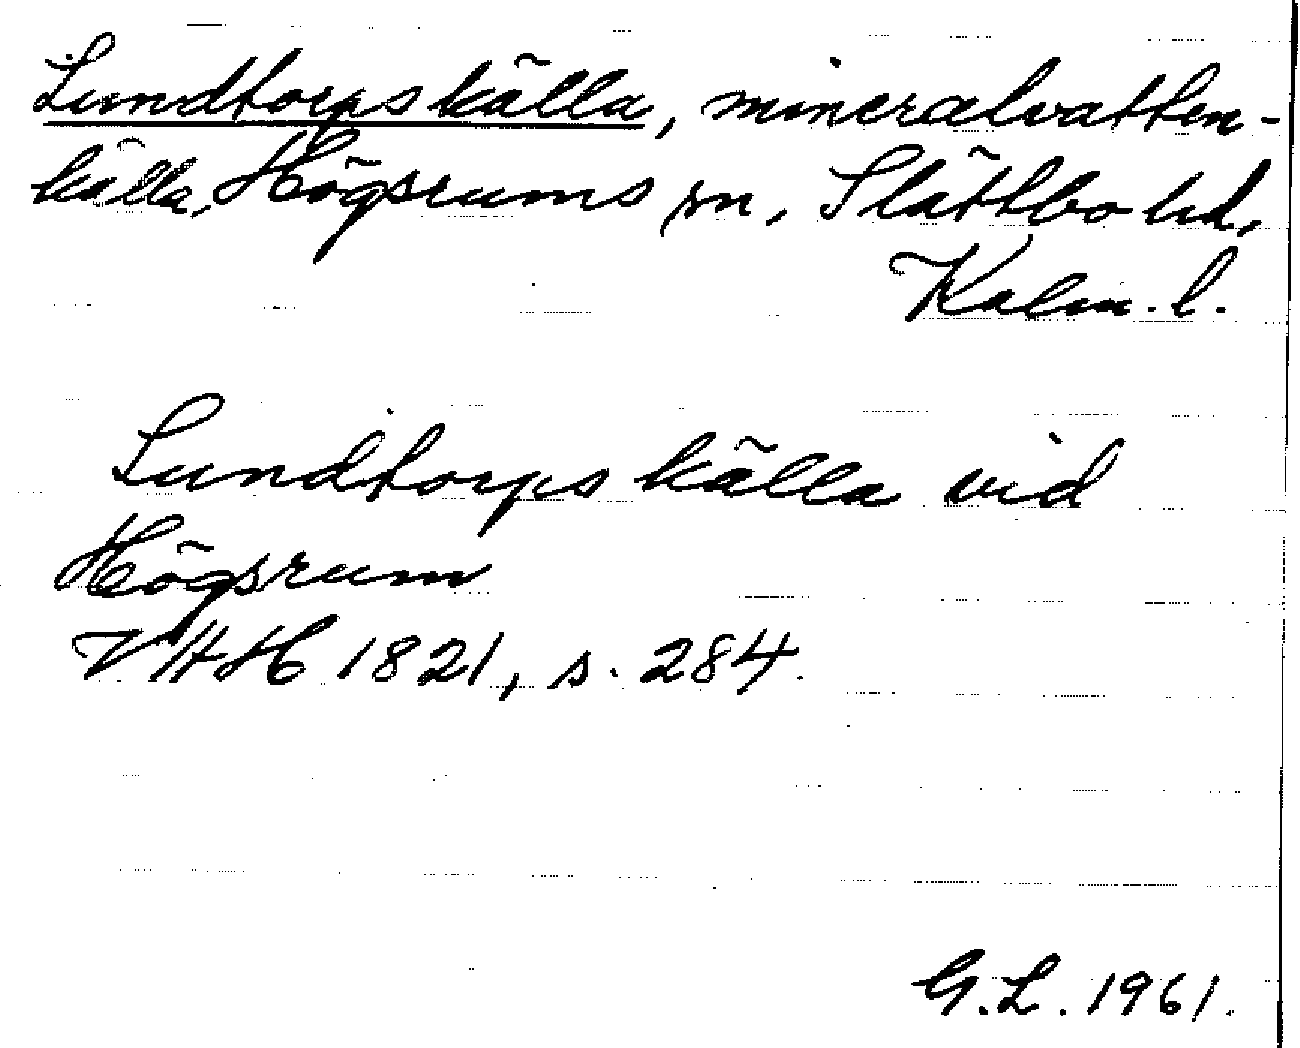 Lundtorps källa, mineralvatten-
källa, Högsrums sn, Slättbo hd,
Kalm. l.
Lundtorps källa vid
Högsrum
VHH 1821, s. 284.
G.L. 1961.